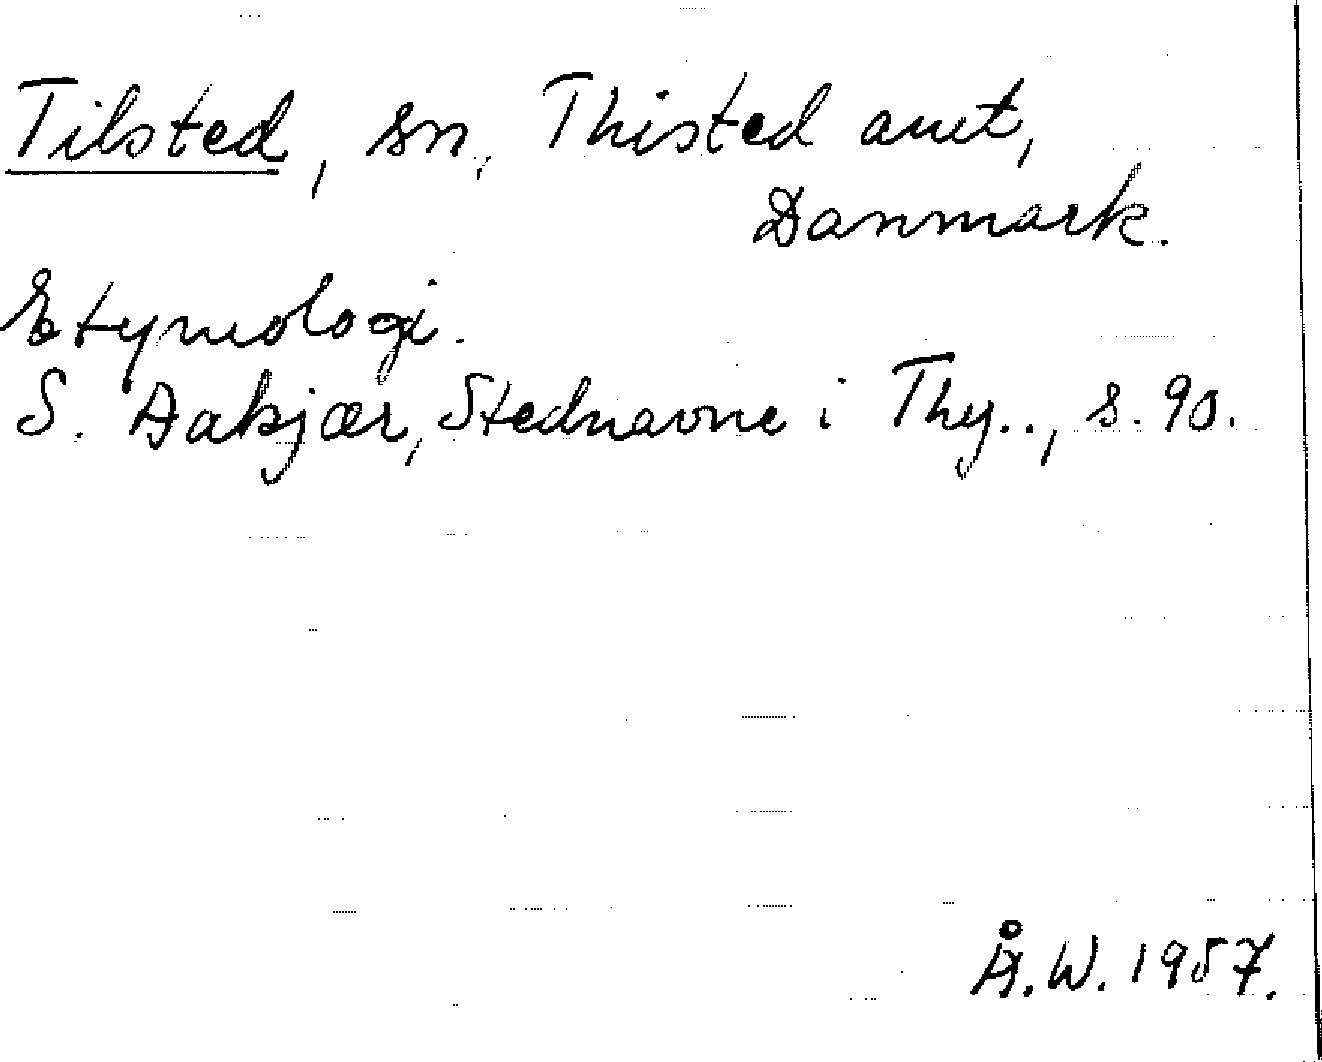 Tilsted, sn, Thisted amt,
Danmark.
Etymologi.
S. Aakjær, Stednavne i Thy.., s. 90.
Å.W. 1957.